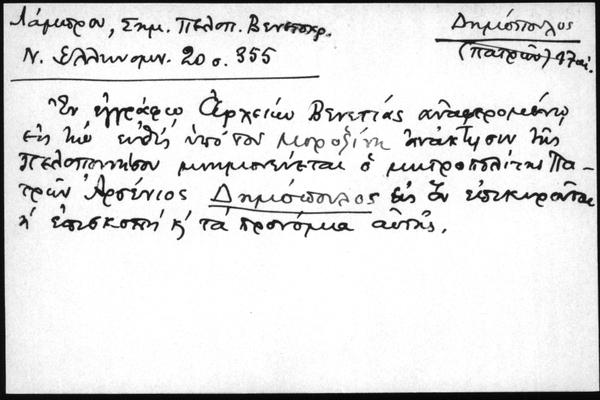 Λάμπρου, Σημ. Πελοπ. Βενετοκρ.
Ν. Ελληνομν. 20 σ. 355
Δημόπουλος
(Πατρῶν) 17 αἰ.
Ἐν ἐγγράφῳ Ἀρχείων Βενετίας ἀναφερομένῳ
εἰς τὴν ὑπὸ τοῦ Μοροζίνη ἀνάκτησιν τῆς
Πελοποννήσου μνημονεύεται ὁ μητροπολίτης Πα-
τρῶν Ἀρσένιος Δημόπουλος εἰς ὃν ἐπικυροῦται
ἡ ἐπισκοπή κ' τά προνόμια αὐτῆς.